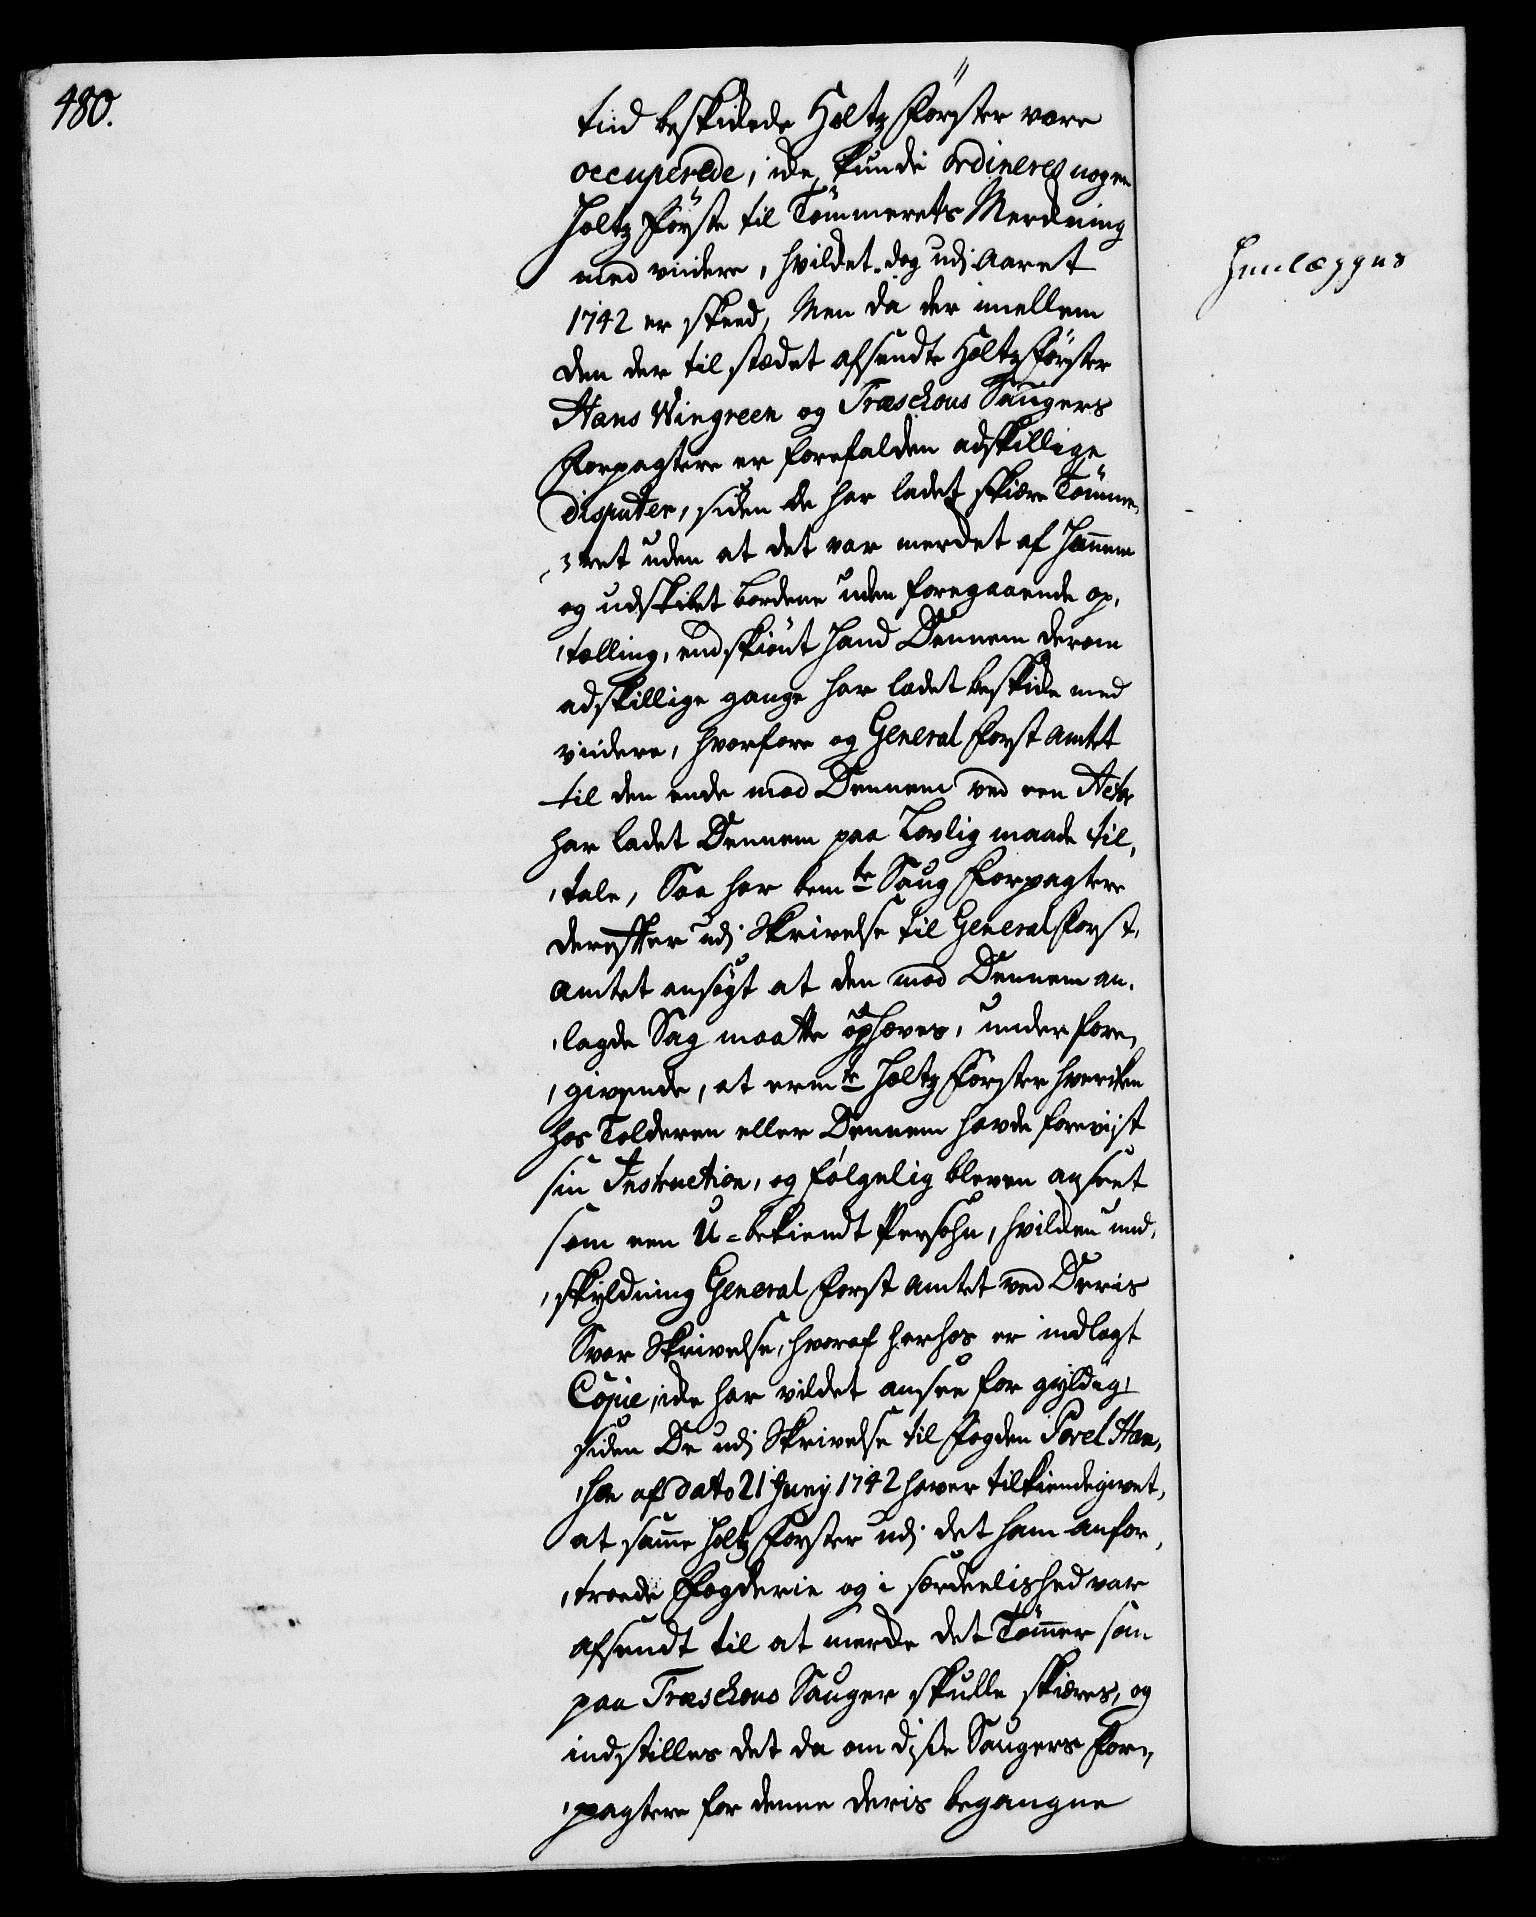 480.
tiid beskikede Holtz Förster vare
occuperede, icke kunde ordineres nogen
Holtz Förste til Tömmerets Merckning
med viidere, hvilcket dog udj Aaret
1742 er skeed, Men da der imellem
den der til stædet afsendte Holtz Förster
Hans Wingreen og Træschous Saugers
Forpagtere er forefalden adskillige
disputer, siden de har ladet skiære Tömme-
-ret uden at det var mercket af Hannem
og udskibet Bordene uden foregaaende op-
-tælling, endskiönt Hand Dennem derom
adskillige gange har ladet beskicke med
viidere, hvorfore og General Forst Amtet
til den ende mod Dennem ved een Actor
har ladet Dennem paa Lovlig maade til-
-tale, Saa har bemte Saug Forpagtere
derefter udj Skrivelse til General Forst-
Amtet ansögt at den mod Dennem an-
-lagde Sag maatte ophæves, under fore-
-givende, at ermte Holtz Förster hvercken
hos Tolderen eller Dennem havde foreviist
sin Instruction, og fölgelig bleven anseet
som een U-bekiendt Persohn, hvilcken und-
-skyldning General Forst Amtet ved Deris
Svar Skrivelse, hvoraf herhos er indlagt
Copie, icke har vildet ansee for gyldig,
siden De udj Skrivelse til Fogden Povel Han-
-hoe af dato 21 Junij 1742 haver tilkiendegivet,
at samme Holtz Förster udj det ham anfor-
-troede Fogderie og i særdeelished var
afsendt til at mercke det Tömmer som
paa Træschous Sauger skulle skiæres, og
indstilles det da om disse Saugers For-
-pagtere for denne deris begangne
Henlægges